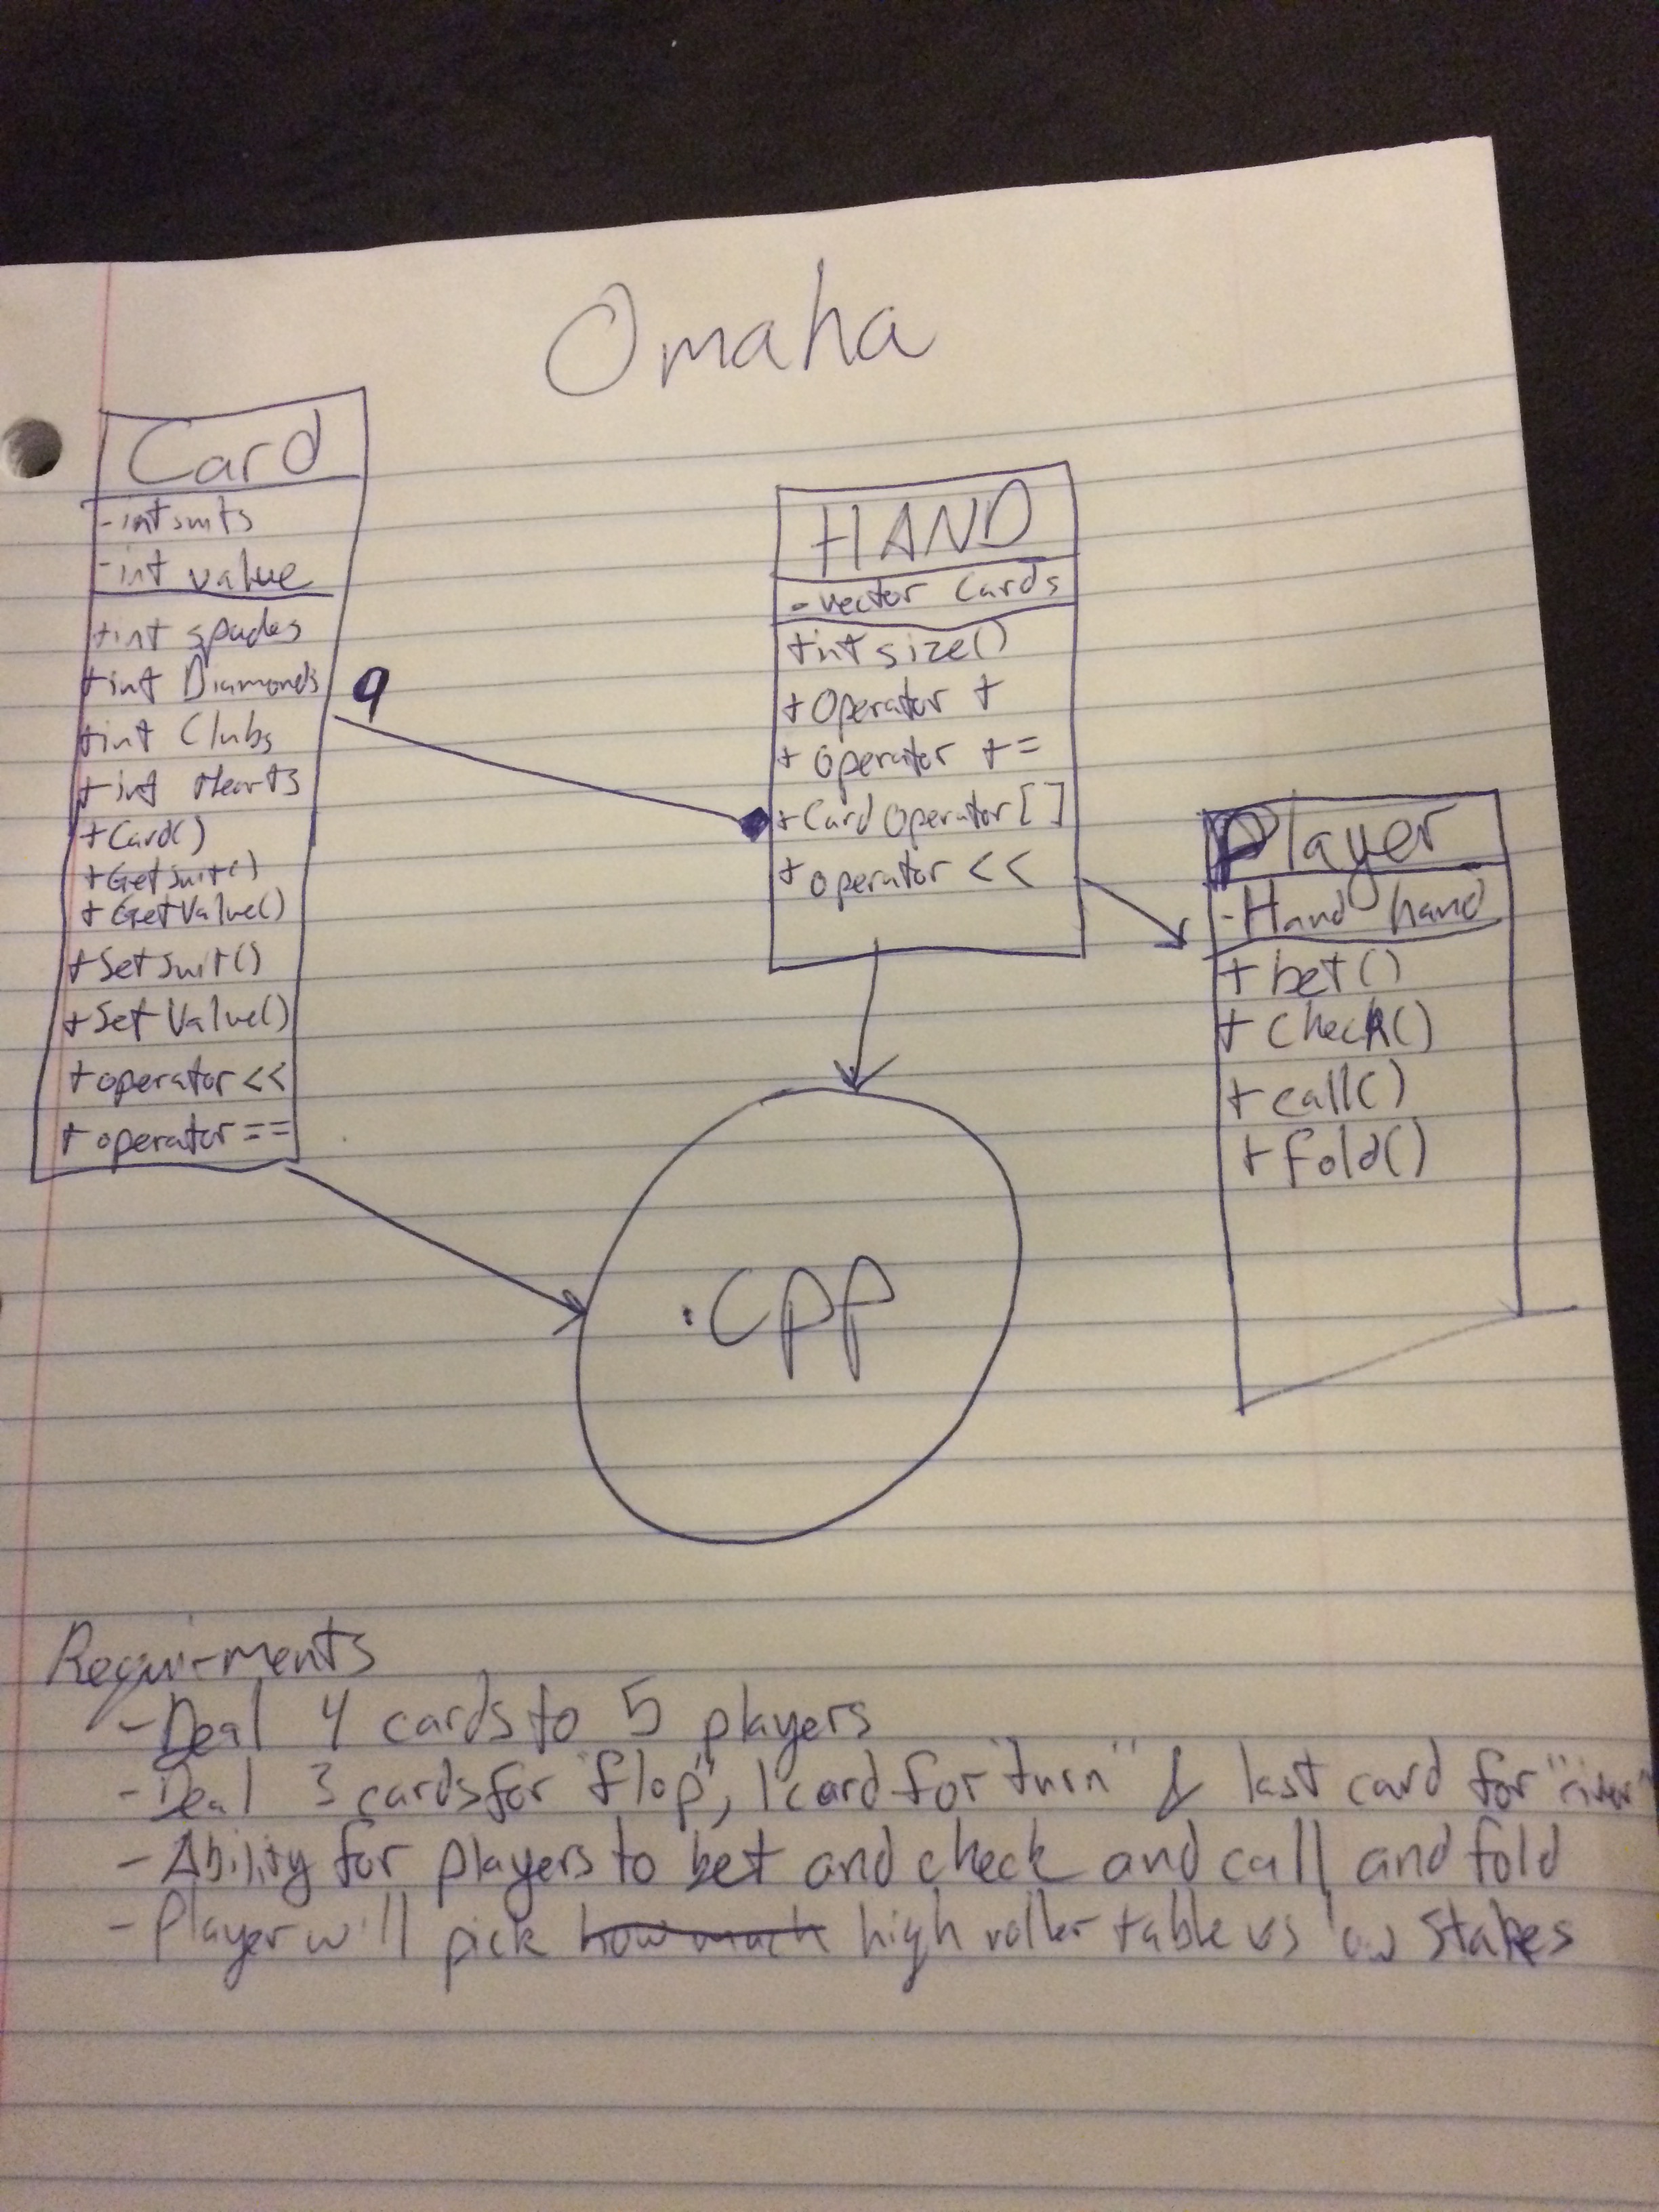 Omaha
Card
- int suits
- int value
+int spades
+int Diamonds
+int Clubs
+int Hearts
+Card()
+Getsuit()
+GetValue()
+Setsuit()
+SetValue()
+operator <<
+operator ==
9
HAND
- vector Cards
+int size()
+Operator +
+ operator +=
+Card Operator[]
+ operator <<
Player
-Hand hand
+bet()
+check()
+call()
+fold()
.cpp
Requirments
-Deal 4 cards to 5 players
-Deal 3 cards for "flop", 1 card for "turn" & last card for "river"
-Ability for players to bet and check and call and fold
-Player will pick how much high roller table vs low stakes